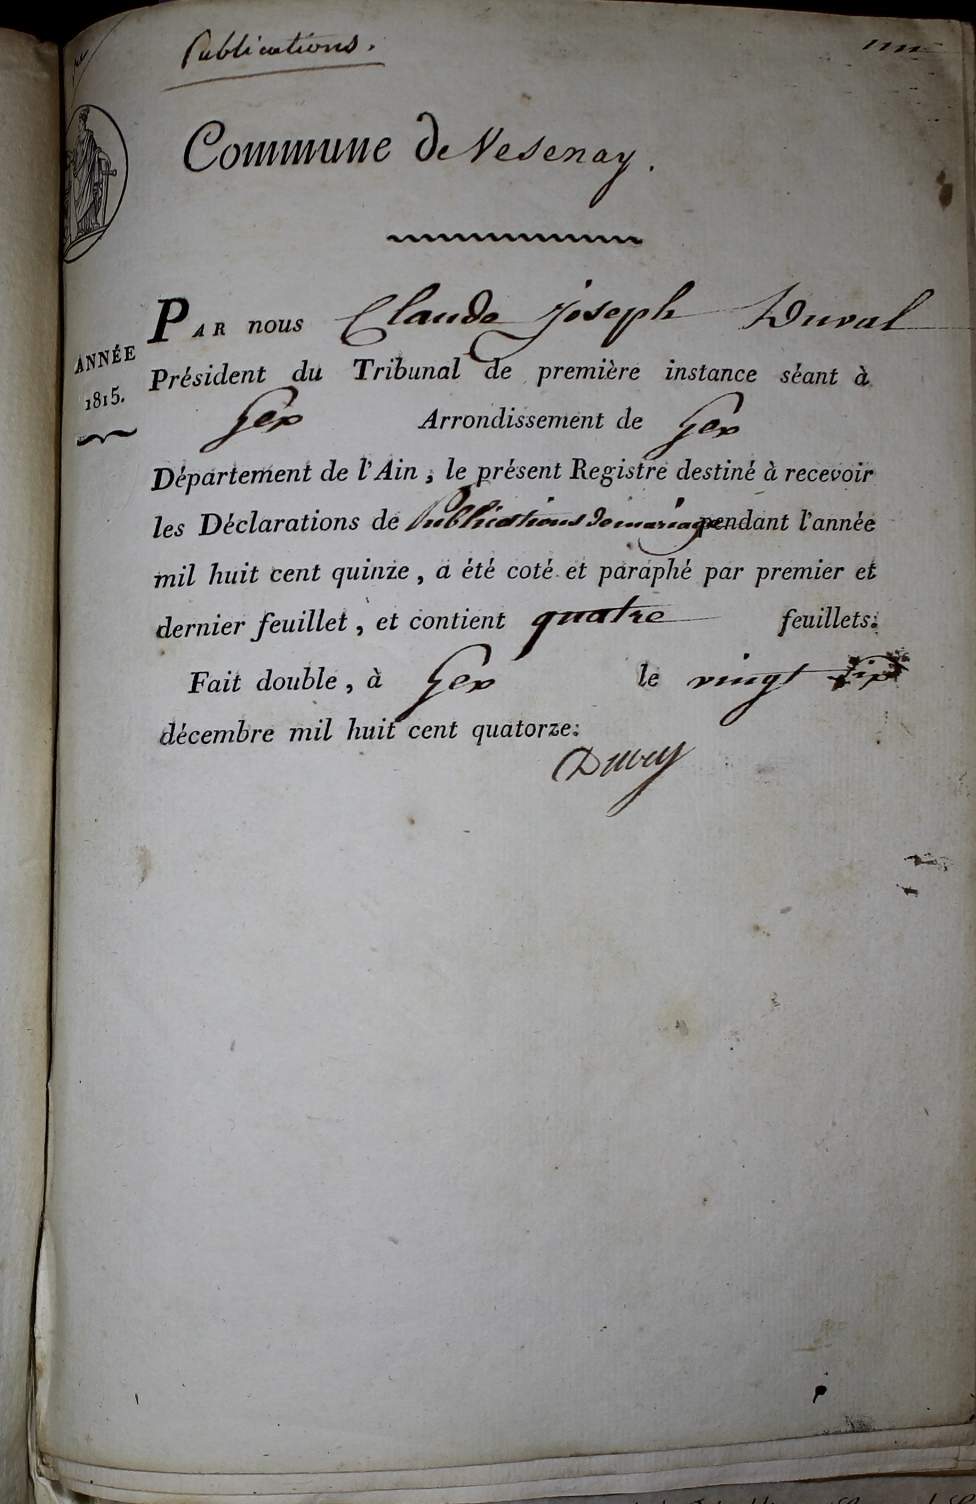 Publications.
Commune de Vesenay.
ANNÉE
1815.
PAR nous Claude Joseph Duval
Président du Tribunal de première instance séant à
Gex Arrondissement de Gex
Département de l'Ain, le présent Registre destiné à recevoir
les Déclarations de Publications de mariage pendant l'année
mil huit cent quinze, a été coté et paraphé par premier et
dernier feuillet, et contient quatre feuillets.
Fait double, à Gex le vingt six
décembre mil huit cent quatorze.